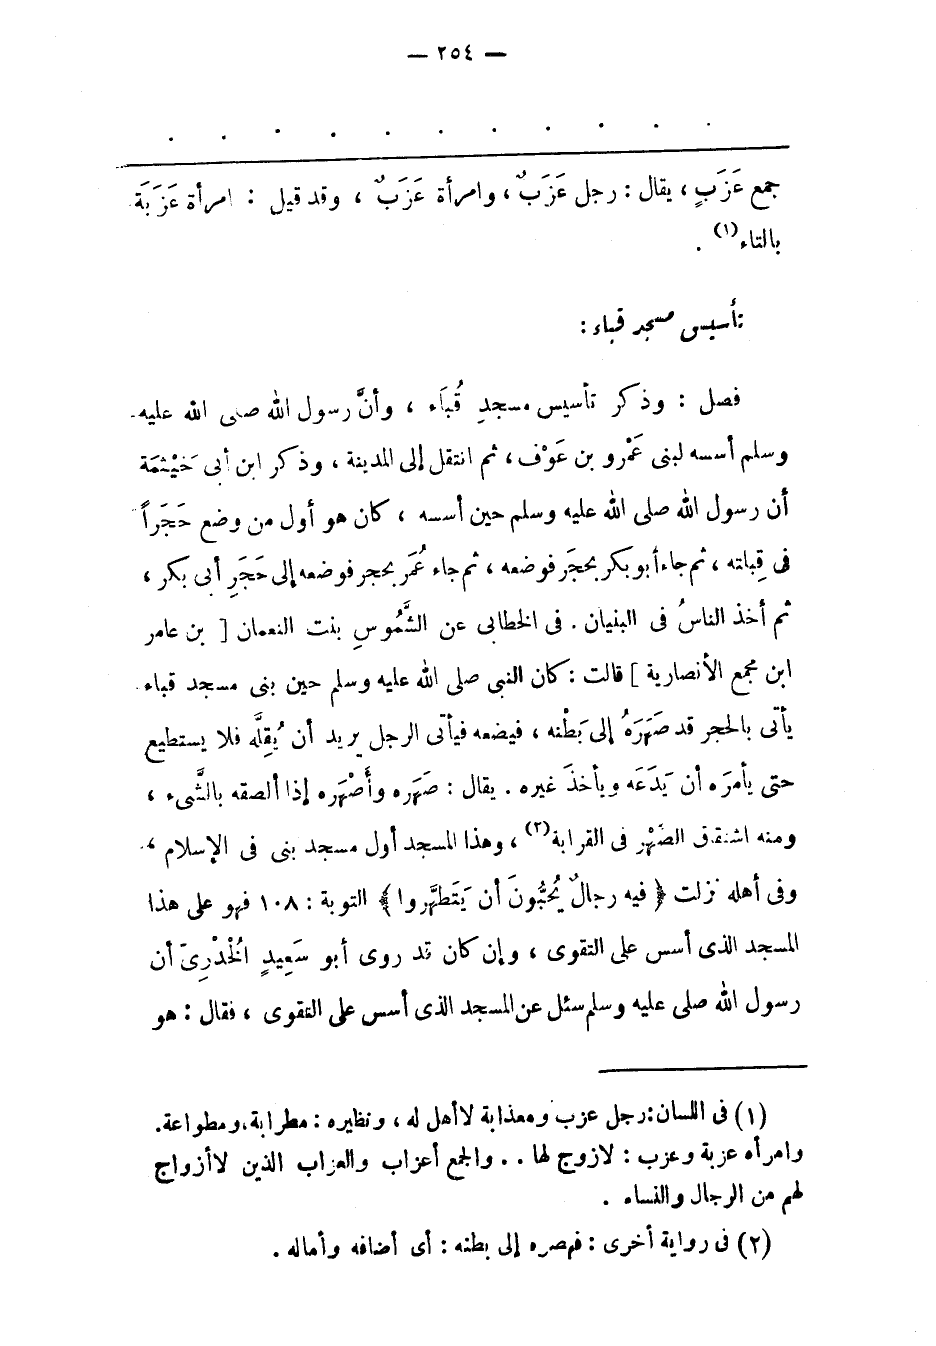 — ٢٥٤ —
. . . . . . . . . . .
جمع عَزَبٍ ، يقال : رجل عَزَبٌ ، وامرأة عَزَبٌ ، وقد قيل : امرأة عَزَبَة
بالتاء(١) .
تأسيس مسجد قباء :
فصل : وذكر تأسيس مسجدِ قُبَاَء ، وأنَّ رسول الله صلى الله عليه
وسلم أسسه لبنى عَمْرو بن عَوْف ، ثم انتقل إلى المدينة ، وذكر ابن أبى خَيْثمَة
أن رسول الله صلى الله عليه وسلم حين أسسه ، كان هو أول من وضع حَجَراً
فى قِبلته ، ثم جاء أبو بكر بحجَر فوضعه ، ثم جاء عُمَر بحجر فوضعه إلى حَجَرِ أبى بكر ،
ثم أخذ الناسُ فى البنيان . فى الخطابى عن الشَّمُوسِ بنت النعمان [ بن عامر
ابن مجمع الأنصارية ] قالت : كان النبى صلى الله عليه وسلم حين بنى مسجد قباء
يأتى بالحجر قد صَهَرَهُ إلى بَطْنه ، فيضعه فيأتى الرجل يريد أن يُقِلَّه فلا يستطيع
حتى يأمرَه أن يَدَعَه ويأخذَ غيره . يقال : صَهَره وأَصْهَره إذا ألصقه بالشَّىء ،
ومنه اشتقاق الصِّهْر فى القرابة(٢) ، وهذا المسجد أول مسجد بنى فى الإسلام ،
وفى أهله نزلت ﴿ فيه رجالٌ يُحبُّونَ أن يَتَطهَّروا ﴾ التوبة : ١٠٨ فهو على هذا
المسجد الذى أسس على التقوى ، وإن كان قد روى أبو سَعِيدٍ الْخُدْرِىّ أن
رسول الله صلى عليه وسلم سئل عن المسجد الذى أسس على التقوى ، فقال : هو
(١) فى اللسان : رجل عزب ومعذابة لا أهل له ، ونظيره : مطرابة ، ومطواعة .
وامرأه عزبة وعزب : لازوج لها . . والجمع أعزاب والعزاب الذين لاأزواج
لهم من الرجال والنساء .
(٢) فى رواية أخرى : فهصره إلى بطنه : أى أضافه وأماله .